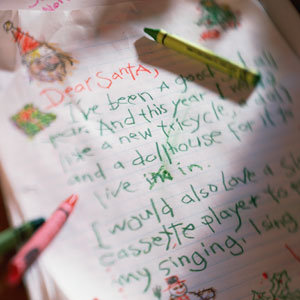 Dear Santa,
I've been a good
year. And this year I would
like a new tricycle, a doll
and a dollhouse for it to
live in in.
I would also love a
cassette player to
my singing. I sing